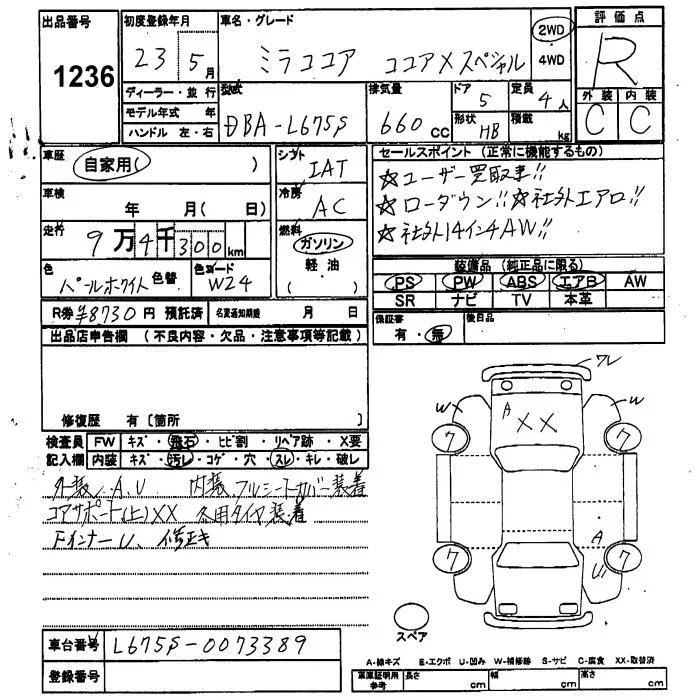 出品番号
1236
初度登録年月
23 5月
車名・グレード
ミラココア ココアXスペシャル
2WD
4WD
評価点
R
外装 内装
C C
ディーラー・並行
モデル年式 年
ハンドル 左・右
型式
DBA-L675S
排気量
660 CC
ドア
5
形状
HB
定員
4人
積載
kg
車歴
自家用( )
車検
年 月( 日)
走行
9万4千300km
色
パールホワイト
色替
色コード
W24
シフト
IAT
冷房
AC
燃料
ガソリン
軽・油
( )
セールスポイント(正常に機能するもの)
☆ユーザー買取車!!
☆ローダウン!!☆社外エアロ!!
☆社外14インチAW!!
装備品(純正品に限る)
PS PW ABS エアB AW
SR ナビ TV 本革
R券 ¥8730円 預託済
名変通知期限 月 日
保証書
有・無
後日品
出品店申告欄(不良内容・欠品・注意事項等記載)
修復歴 有〔箇所 〕
検査員 FW キズ・飛石・ヒビ割・リペア跡・X要
記入欄 内装 キズ・汚レ・コゲ・穴・スレ・キレ・破レ
外装A.U 内装フルシートカバー装着
コアサポート(上)XX 冬用タイヤ装着
FインナーU、修正キ
ワレ
W
A
XX
W
7
7
7
A
7
U
スペア
車台番号
L675S-0073389
登録番号
A-線キズ E-エクボ U-凹み W-補修跡 S-サビ C-腐食 XX-取替済
車庫証明用
参考
長さ cm
幅 cm
高さ cm